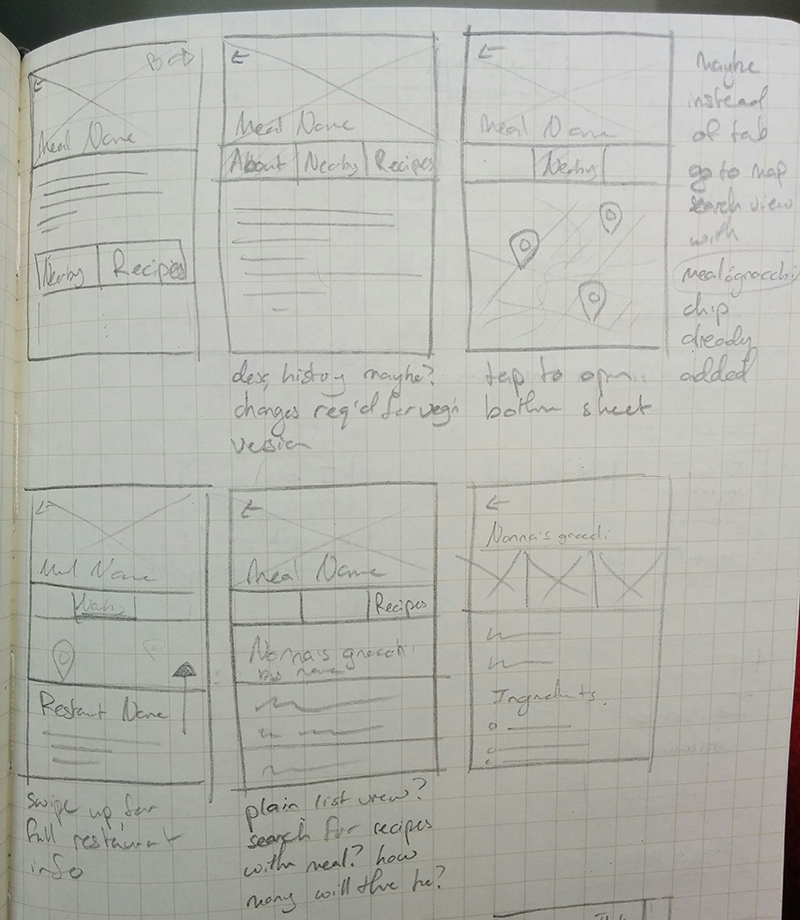 Meal Name
Nearby
Recipes
Meal Name
About
Nearby
Recipes
desc, history maybe?
changes req'd for veg'n
version
Meal Name
Nearby
tap to open
bottom sheet
Maybe
instead
of tab
go to map
search view
with
meal:gnocchi
chip
already
added
Meal Name
Nearby
Restaurant Name
swipe up for
full restaurant
info
Meal Name
Recipes
Nonna's gnocchi
by name
plain list view?
search for recipes
within meal? how
many will there be?
Nonna's gnocchi
Ingredients